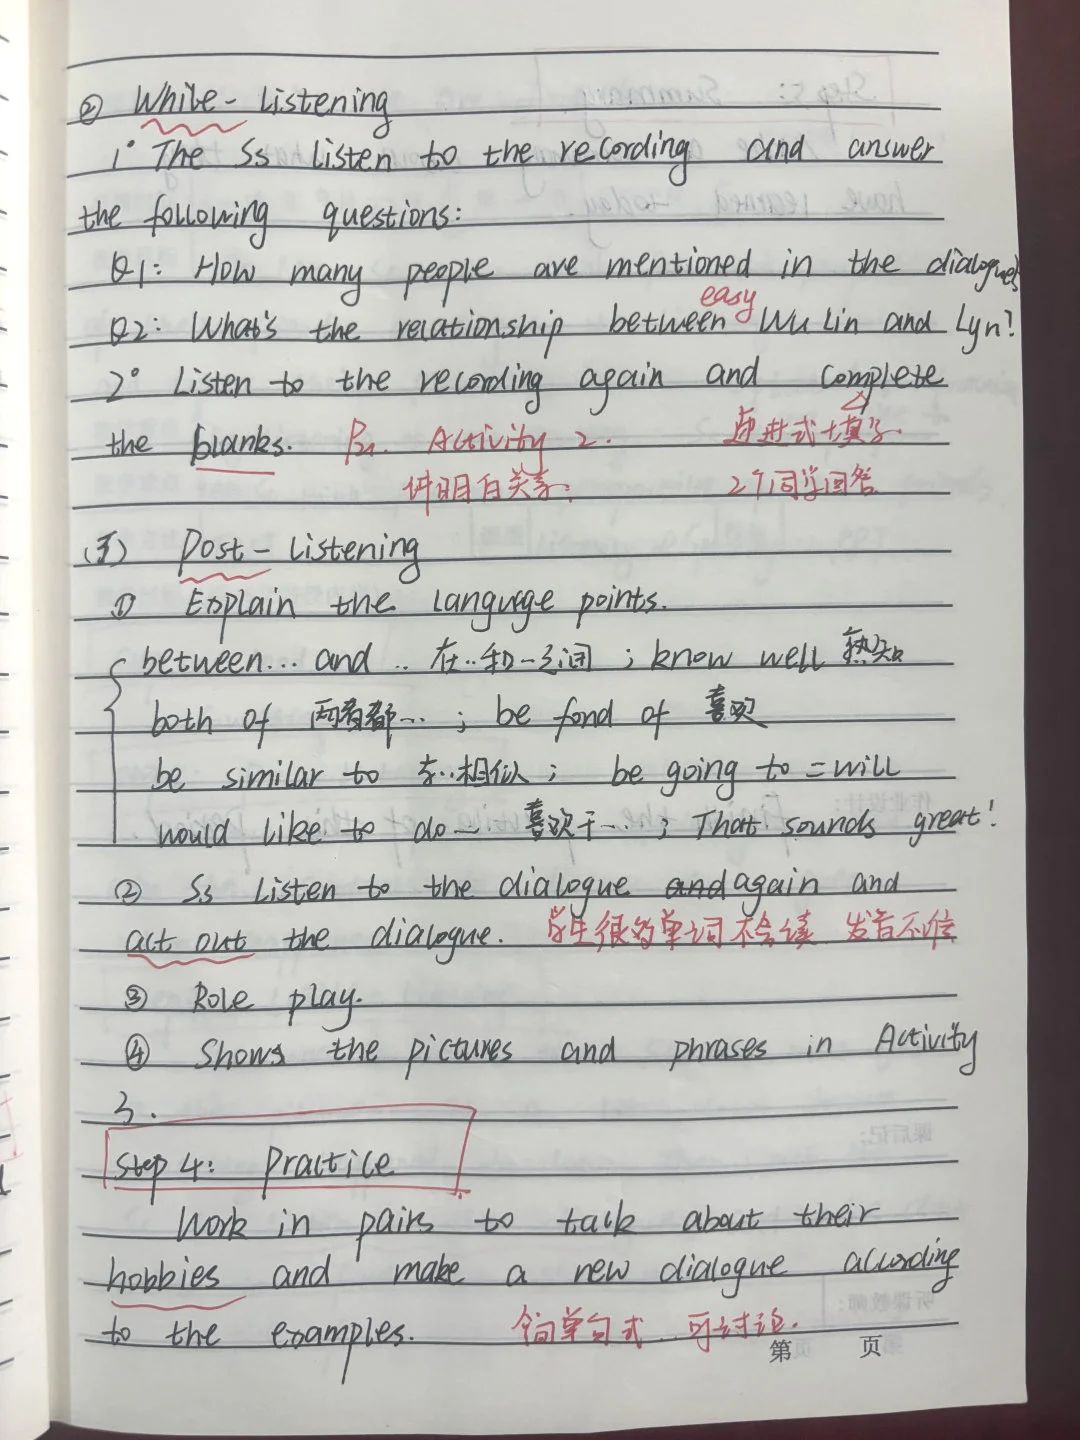 ② While-listening
1° The Ss listen to the recording and answer
the following questions:
Q1: How many people are mentioned in the dialogue?
easy
Q2: What's the relationship between Wu Lin and Lyn?
2° Listen to the recording again and complete
the blanks. Activity 2. 式填写.
关系; 2个同学回答
Post-listening
① Explain the language points.
between... and .. 在..和..之间 ; know well 熟知
both of 两者都... ; be fond of 喜欢
be similar to 与..相似 ; be going to = will
would like to do... 喜欢干... ; That sounds great!
② Ss listen to the dialogue and again and
act out the dialogue. 学生很多单词不会读 发音不准
③ Role play.
④ Shows the pictures and phrases in Activity
3.
Step 4: Practice
Work in pairs to talk about their
hobbies and make a new dialogue according
to the examples. 简单句式 可讨论.
第 页